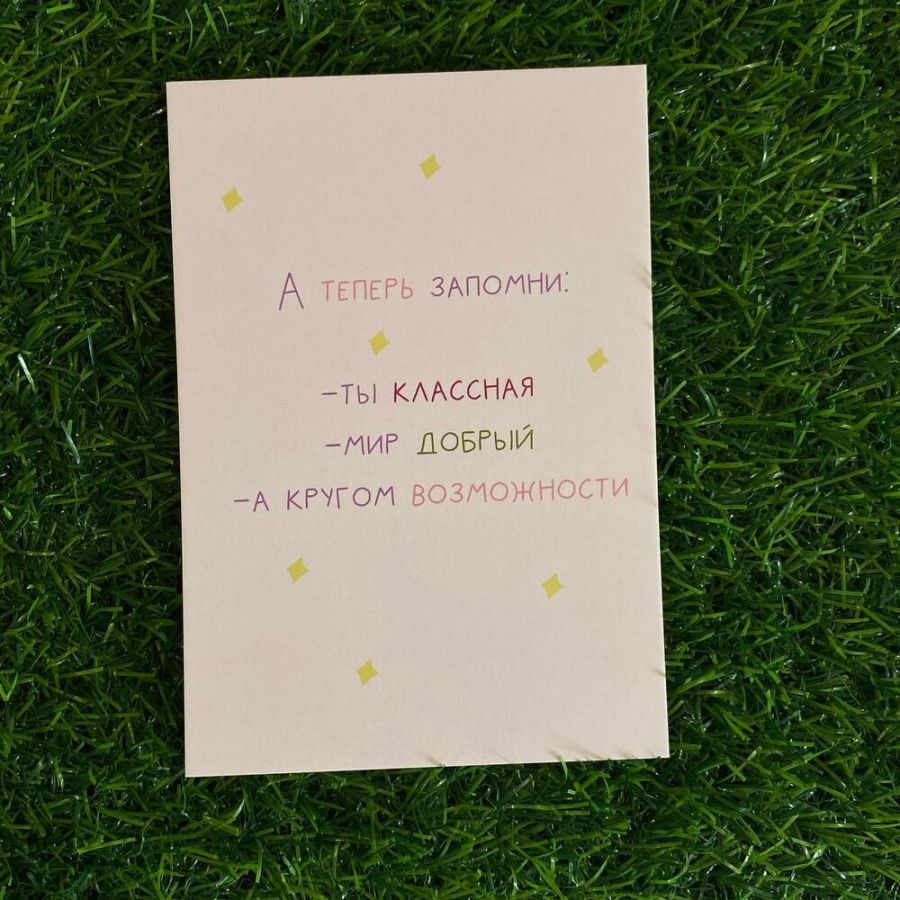 А ТЕПЕРЬ ЗАПОМНИ:
-ТЫ КЛАССНАЯ
-МИР ДОБРЫЙ
-А КРУГОМ ВОЗМОЖНОСТИ